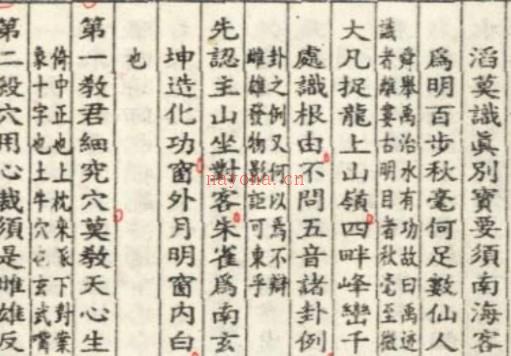 滔莫識眞別寶要須南海客
爲明百步秋毫何足數仙人
舜舉禹治水有功故曰禹迹
識者離婁古明目者秋毫至微
大凡捉龍上山嶺四畔峰巒千
處識根由不問五音諸卦例
卦之例又何以爲不辯
雌雄發物影詎可東乎
先認主山坐對客朱雀爲南玄
坤造化功窗外月明窗内白
也
第一教君細究穴莫教天心生
倚中正也上枕來脈下對案
象十字也土牛穴也玄武嘴
第二殺穴用心裁須是雌雄反
nayona.cn